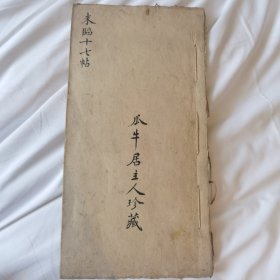 東臨十七帖
瓜牛居主人珍藏